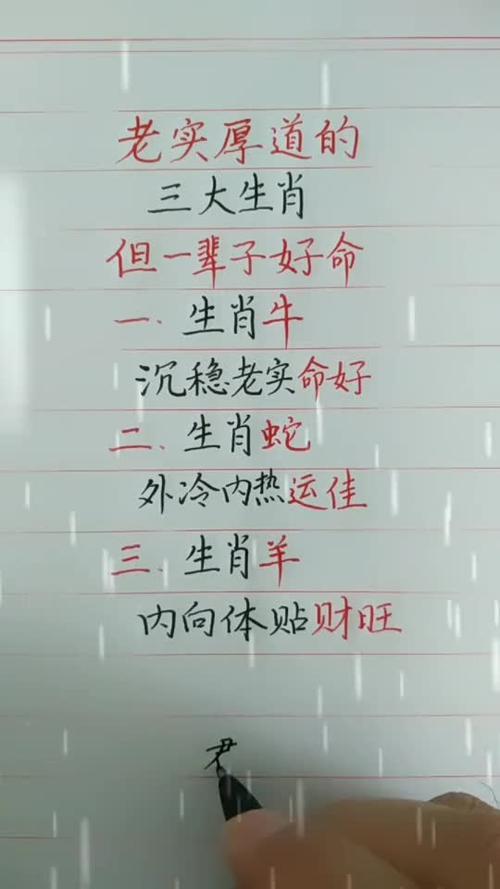 老实厚道的
三大生肖
但一辈子好命
一.生肖牛
沉稳老实命好
二.生肖蛇
外冷内热运佳
三.生肖羊
内向体贴财旺